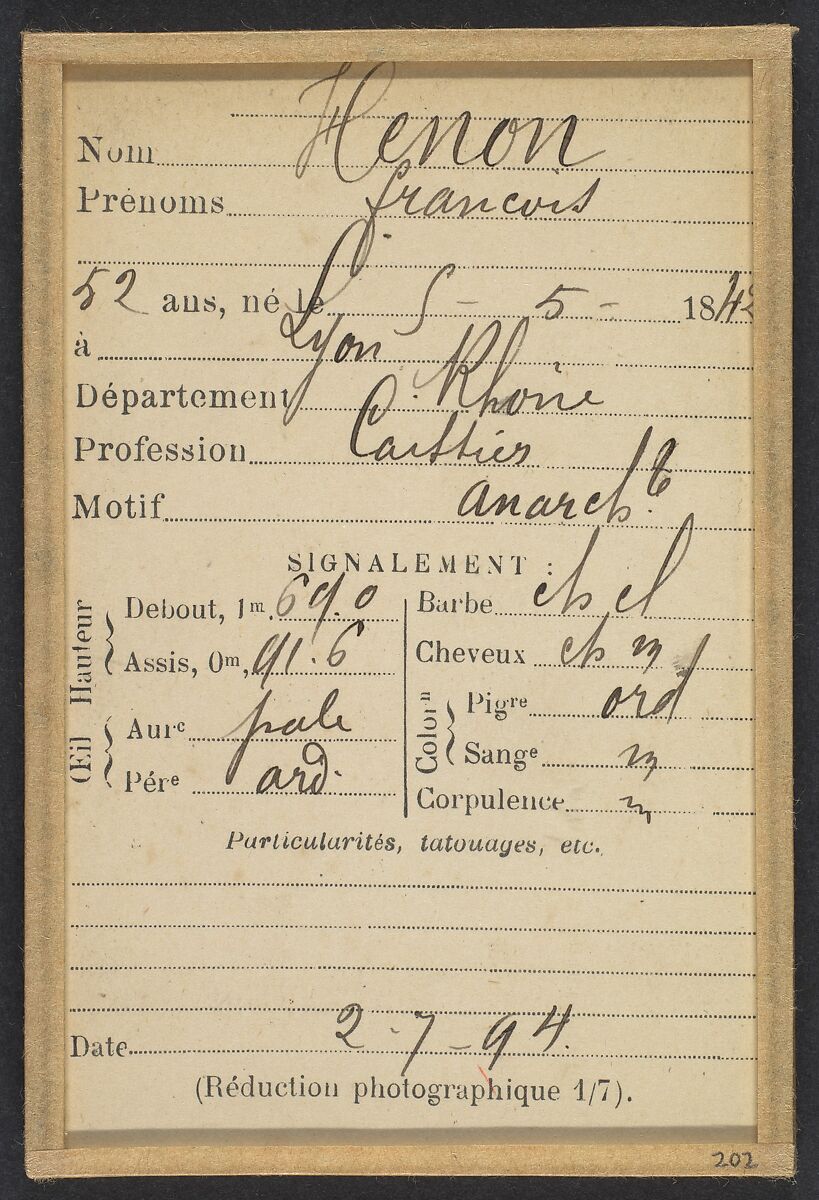 Nom Henon
Prénoms françois
52 ans, né le 5 - 5 - 1842
à Lyon
Département Rhône
Profession
Motif anarch.te
SIGNALEMENT :
Hauteur
Debout, 1m. 69.0
Assis, 0m, 91.6
Œil
Aure pale
Pére ord.
Barbe ch cl
Cheveux ch m
Colorn
Pigre ord
Sange m
Corpulence m
Particularités, tatouages, etc.
Date 2 - 7 - 94.
(Réduction photographique 1/7).
202